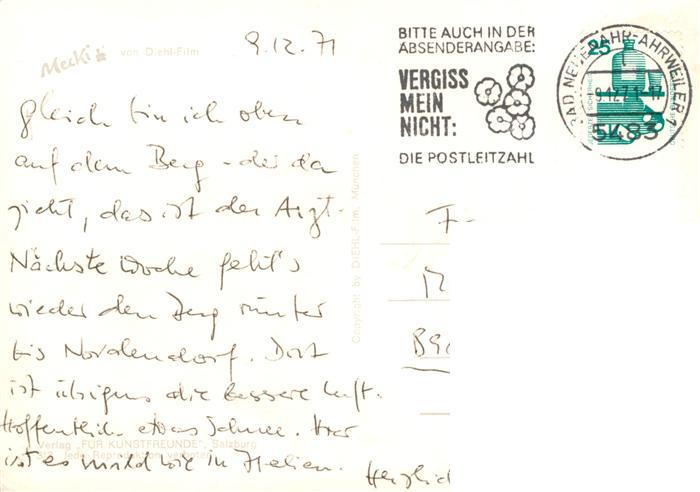 Mecki von Diehl-Film
9.12.71
BITTE AUCH IN DER
ABSENDERANGABE:
VERGISS
MEIN
NICHT:
DIE POSTLEITZAHL
25
BAD NEUENAHR-AHRWEILER 1
9.12.71-17
5483
gleich bin ich oben
auf dem Berg - der da
zieht, das ist der Arzt.
Nächste Woche geht's
wieder den Berg runter
bis Norddendorf. Dort
ist übrigens die bessere Luft.
Hoffentlich etwas Schnee. Hier
ist es mild wie in Italien. Herzlich
Copyright by DIEHL-Film, München
Verlag „FÜR KUNSTFREUNDE", Salzburg
Jede Reproduktion verboten